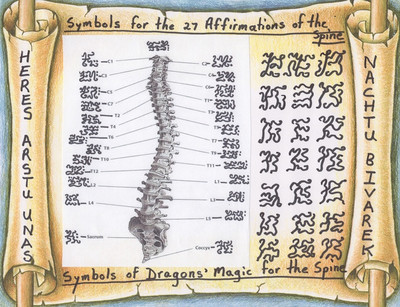 Symbols for the 27 Affirmations of the
Spine
HERES ARSTUNAS
C1
C3
C5
C7
T2
T4
T6
T8
T10
T12
L2
L4
Sacrum
C2
C4
C6
T11
L1
L3
L5
Coccyx
NACHTU BIVAREK
Symbols of Dragons' Magic for the Spine